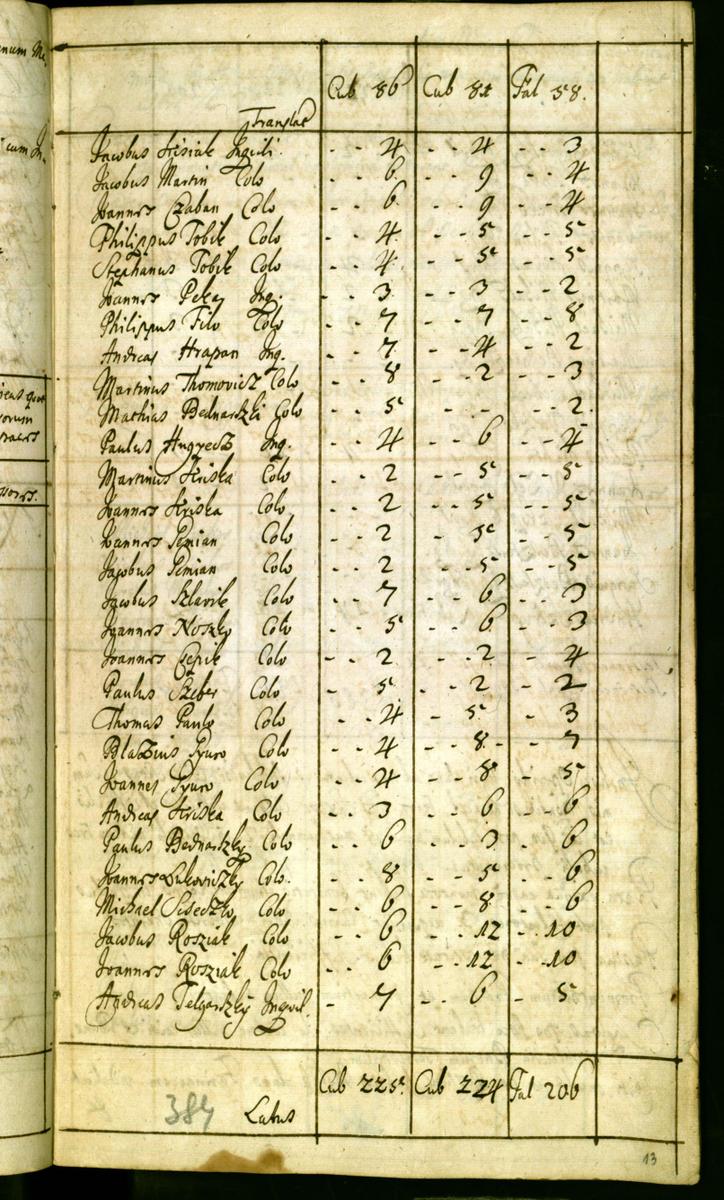 Cub 86 Cub 81 Fal 58.
Translat
Jacobus Hrisiak Inquili. - - 4 - - 4 - - 3
Jacobus Martin Colo - - 6 - - 9 - - 4
Joannes Czaban Colo - - 6 - - 9 - - 4
Philippus Tobik Colo - - 4 - - 5 - - 5
Stephanus Tobik Colo - - 4 - - 5 - - 5
Joannes Pekaj Inq. - - 3 - - 3 - - 2
Philippus Filo Colo - - 7 - - 7 - - 8
Andreas Hrapan Inq. - - 7 - - 4 - - 2
Martinus Thomovicz Colo - - 8 - - 2 - - 3
Mathias Bednarzki Colo - - 5 - - - - 2
Paulus Hugyecz Inq. - - 4 - - 6 - - 4
Martinus Hriska Colo - - 2 - - 5 - - 5
Joannes Hriska Colo - - 2 - - 5 - - 5
Joannes Pemian Colo - - 2 - - 5 - - 5
Jacobus Pemian Colo - - 2 - - 5 - - 5
Jacobus Szlavik Colo - - 7 - - 6 - - 3
Joannes Noszko Colo - - 5 - - 6 - - 3
Joannes Czepik Colo - - 2 - - 2 - - 4
Paulus Szeber Colo - - 5 - - 2 - - 2
Thomas Paulo Colo - - 4 - - 5 - - 3
Blazius Gyuro Colo - - 4 - - 8 - - 7
Joannes Gyuro Colo - - 4 - - 8 - - 5
Andreas Hriska Colo - - 3 - - 6 - - 6
Paulus Bednarzky Colo - - 6 - - 3 - - 6
Joannes Lukoviczky Colo. - - 8 - - 5 - - 6
Michael Colo - - 6 - - 8 - - 6
Jacobus Rosziak Colo - - 6 - - 12 - - 10
Joannes Rosziak Colo - - 6 - - 12 - - 10
Andreas Telgarszky Inquil. - 7 - - 6 - 5
Cub 225. Cub 224 Fal 206
384 Latus
13